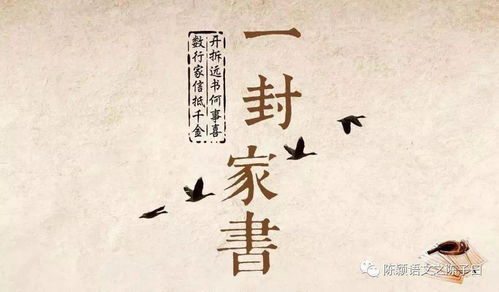 一封家書
开拆远书何事喜
数行家信抵千金
陈颖语文之陈子曰